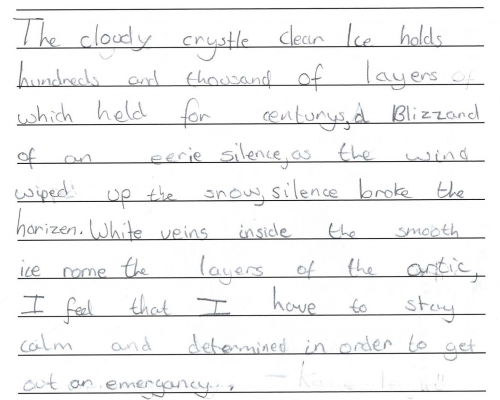 The cloudy crystle clean Ice holds
hundreds and thousand of layers of
which held for centurys, a Blizzand
of an eerie silence, as the wind
wiped up the snow, silence broke the
horizen. White veins inside the smooth
ice rome the layers of the artic,
I feel that I have to stay
calm and determined in order to get
out an emergancy...